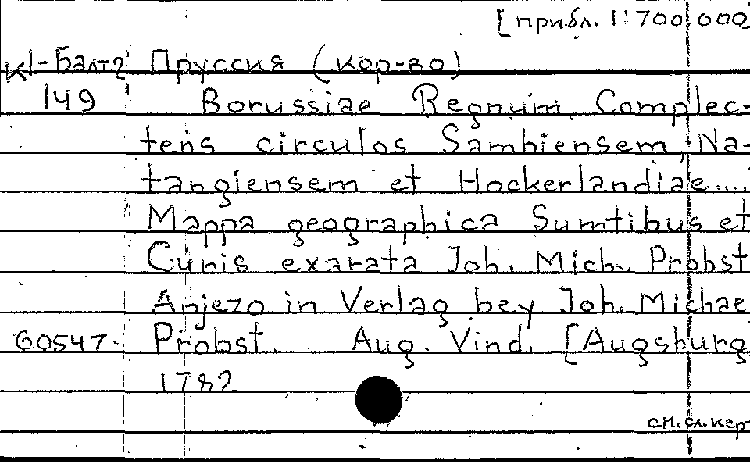 [прибл. 1:700.000
К1-Балт2 Пруссия (кор-во)
149 Borussiae Regnum Complec-
tens circulos Sambiensem, Na-
tangiensem et Hockerlandiae....
Mappa geographica Sumtibus et
Curis exarata Joh. Mich. Probst
Anjezo in Verlag bey Joh. Michae
60547. Probst. Aug. Vind. [Augsburg
1782
см. сл. кар